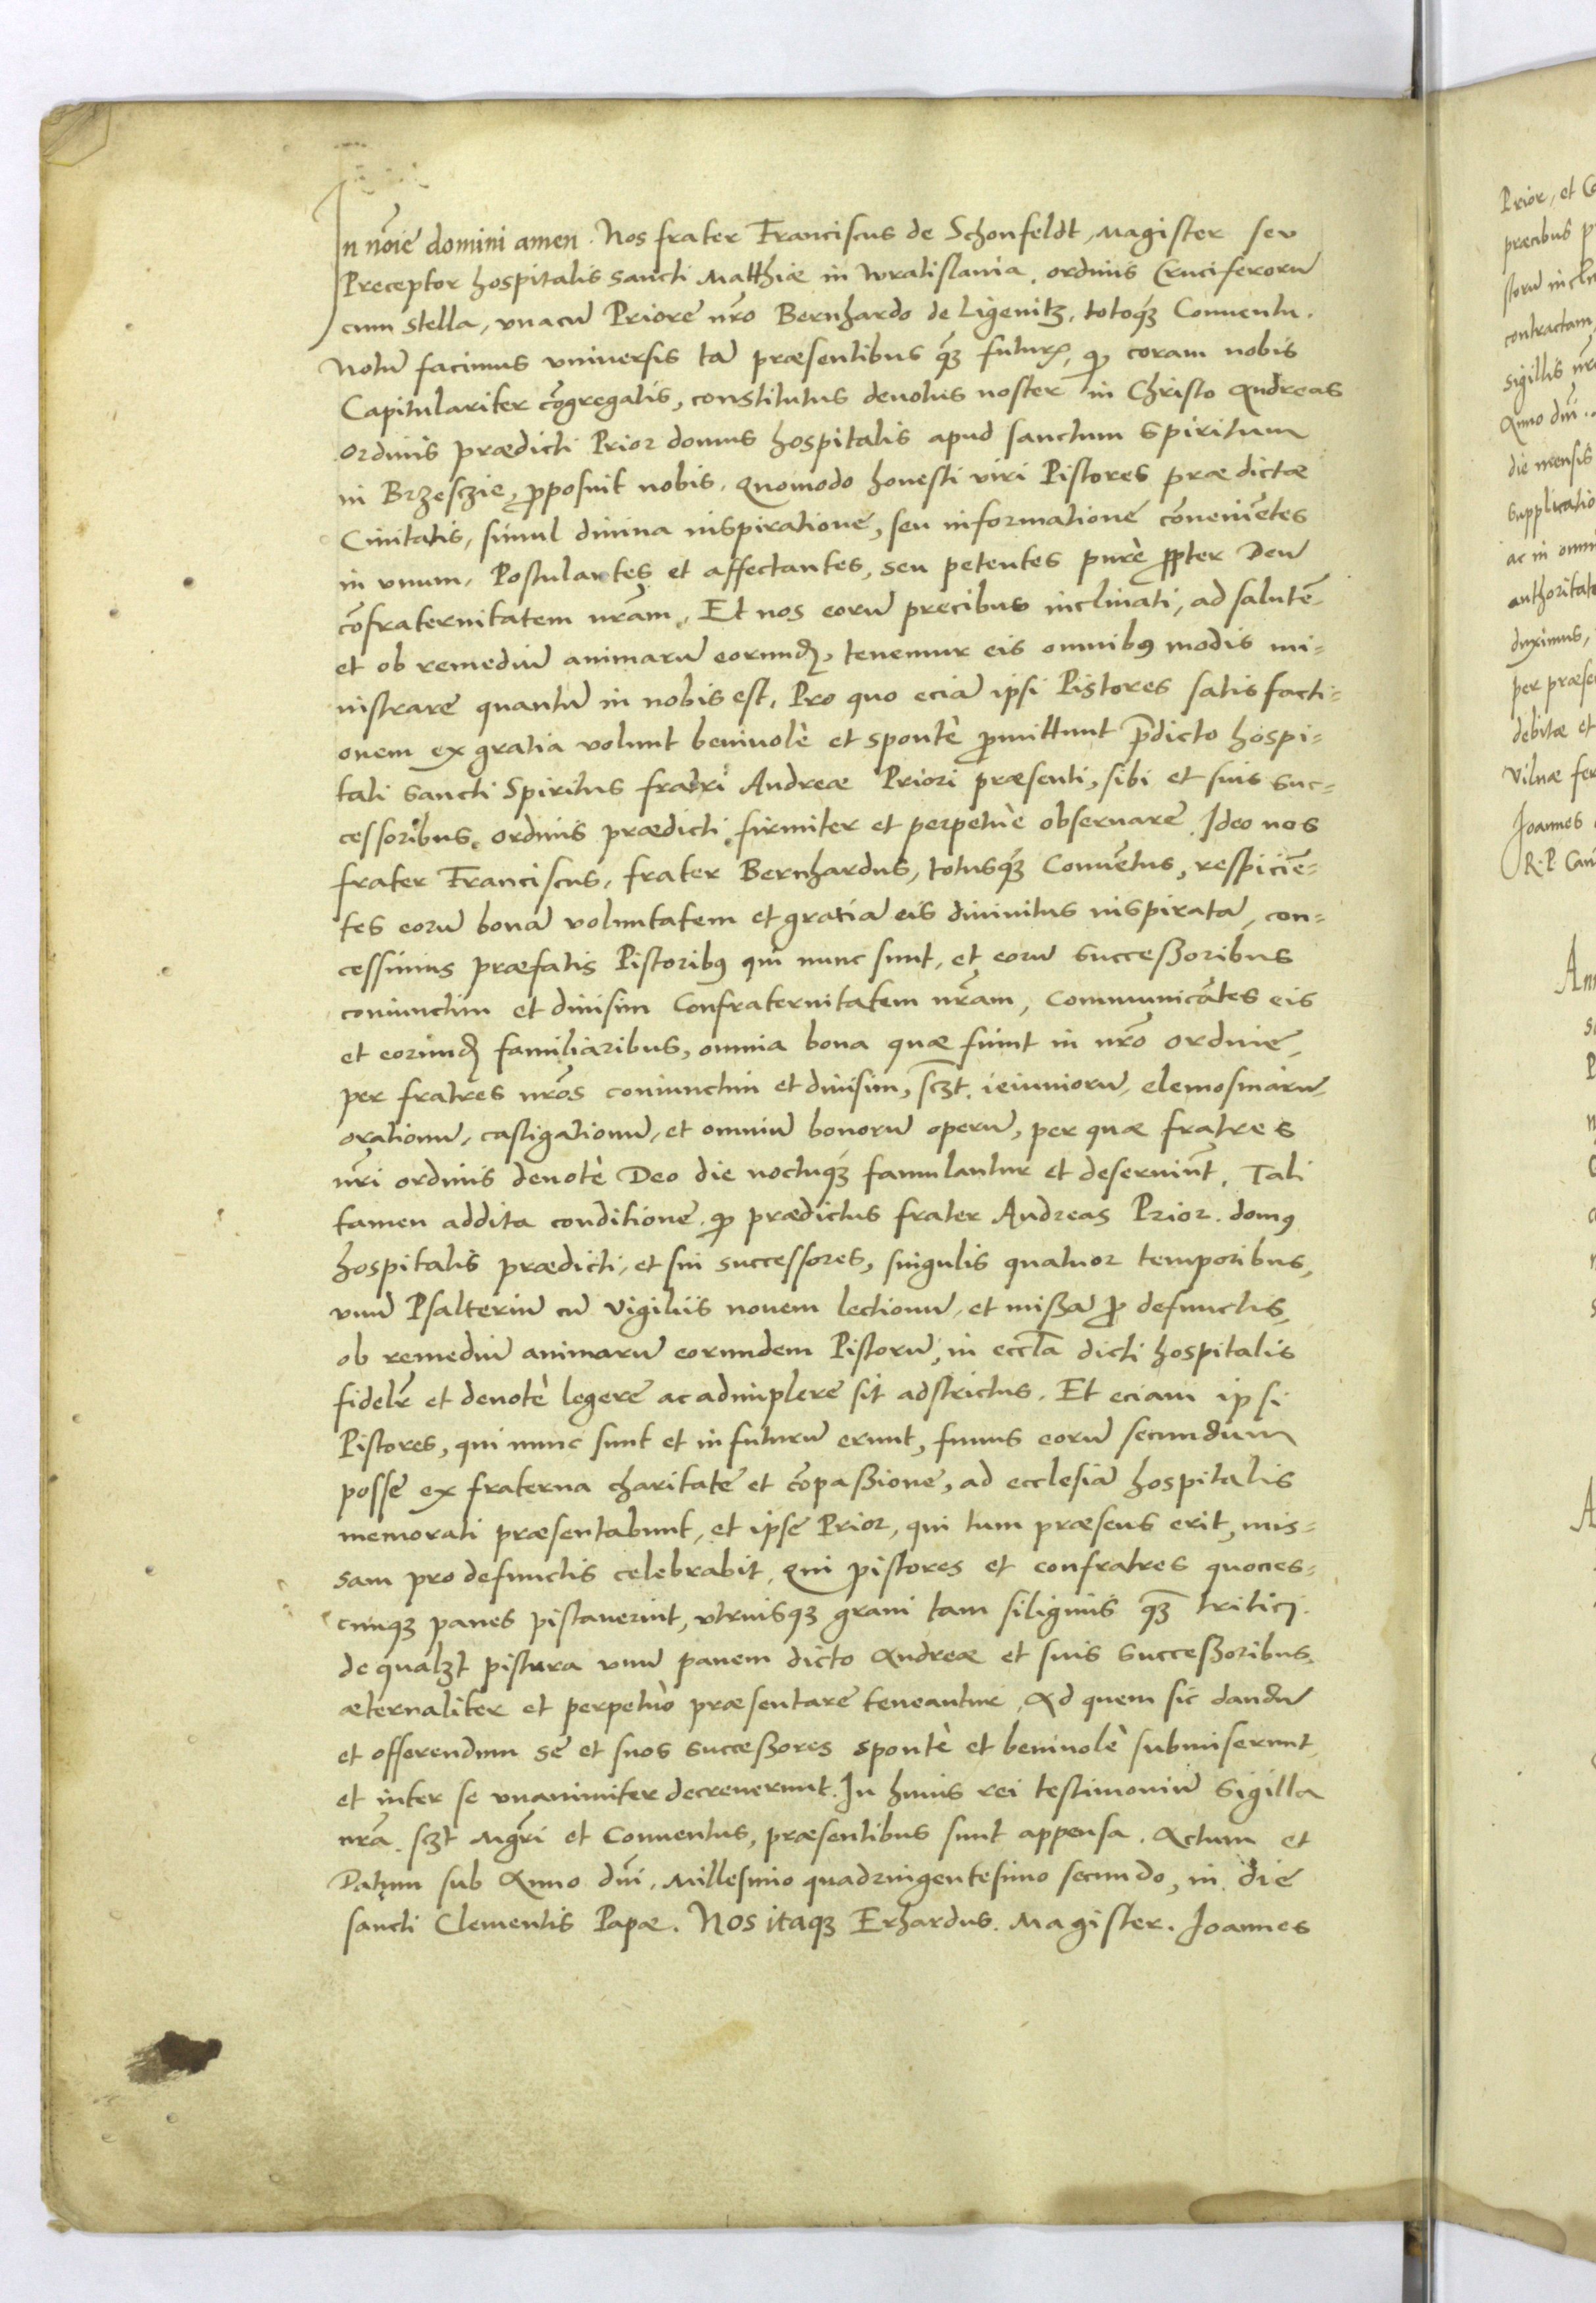 In nōie domini amen. Nos frater Franciscus de Schonfeldt, Magister seu
Preceptor hospitalis sancti Matthiæ in Wratislauia, ordinis Cruciferorū
cum stella, vnacū Priore nr̄o Bernhardo de Ligenitz, totoq́ʒ Conuentu.
Notū facimus vniuersis tā præsentibus q̄ʒ futurꝭ, ꝙ coram nobis
Capitulariter cōgregatis, constitutus deuotus noster in Christo Andreas
ordinis prædicti Prior domus hospitalis apud sanctum Spiritum
in Brzesczie, ꝓposuit nobis. Quomodo honesti viri Pistores præ dictæ
Ciuitatis, simul diuina inspiratione, seu informatione cōueniētes
in vnum, Postulantes et affectantes, seu petentes purè ꝓpter Deū
cōfraternitatem nr̄am. Et nos eorū precibus inclinati, ad salutē
et ob remediū animarū eorundꝫ, tenemur eis omnibꝰ modis mi=
nistrare quantū in nobis est, Pro quo eciā ipsi Pistores satisfacti=
onem ex gratia volunt beniuolè et spontè ꝓmittunt p̄dicto hospi=
tali sancti Spiritus fratri Andreæ Priori præsenti, sibi et suis suc=
cessoribus, ordinis prædicti firmiter et perpetuè obseruare. Ideo nos
frater Franciscus, frater Bernhardus, totusq́ʒ Conuētus, respiciē=
tes eorū bonā voluntatem et gratiā eis diuinitus inspiratā, con=
cessimus præfatis Pistoribꝰ qui nunc sunt, et eorū Succeßoribus
coniunctim et diuisim Confraternitatem nr̄am, Communicātes eis
et eorundꝫ familiaribus, omnia bona quæ fiunt in nr̄o ordine,
per fratres nr̄os coniunctim et diuisim, scꝫt ieiuniorū, elemosinarū
orationū, castigationū, et omniū bonorū operū, per quæ fratres
nr̄i ordinis deuotè Deo die noctuq́ʒ famulantur et deseruiūt. Tali
tamen addita conditione, ꝙ prædictus frater Andreas Prior domꝰ
hospitalis prædicti, et sui successores, singulis quatuor temporibus,
vnū Psalteriū cū Vigiliis nouem lectionū, et mißā ꝓ defunctis,
ob remediū animarū eorundem Pistorū, in eccl̄ia dicti hospitalis
fidelr̄ et deuotè legere ac adimplere sit adstrictus. Et eciam ipsi
Pistores, qui nunc sunt et in futurū erunt, funus eorū secundum
posse ex fraterna charitate et cōpaßione, ad ecclesiā hospitalis
memorati præsentabunt, et ipse Prior, qui tum præsens erit, mis=
sam pro defunctis celebrabit, Qui pistores et confratres quocies=
cunqʒ panes pistauerint, vtriusqʒ grani tam siliginis q̄ʒ tritici.
de qualꝫt pistura vnū panem dicto Andreæ et suis Succeßoribus.
æternaliter et perpetuò præsentare teneantur. Ad quem sic dandū
et offerendum se et suos succeßores spontè et beniuolè submiserunt
et inter se vnanimiter decreuerunt. In huius rei testimoniū Sigilla
nr̄a. scꝫt Mgr̄i et Conuentus, præsentibus sunt appensa. Actum et
Datum sub Anno dn̄i. Millesimo quadringentesimo secundo, in die
sancti Clementis Papæ. Nos itaqʒ Erhardus. Magister. Joannes
Prior, et
precibus
contractam
sigillis
Anno dn̄i
die mensis
Supplicatio
ac in
authoritate
duximus,
per
debitæ et
Vilnæ
Joannes
R. P.